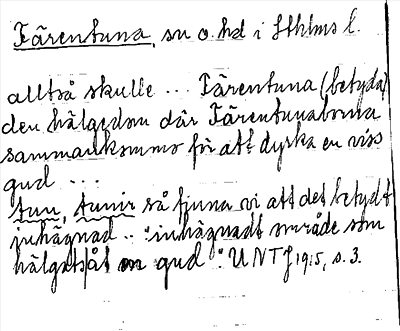 Färentuna, sn o. hd i Sthlms l.
alltså skulle ... Färentuna (betyda)
den hälgedom där Färentunaborna
sammankommo för att dyrka en viss
gud ...
tun, tunir så finna vi att det betydt
inhägnad .. "inhägnadt område som
hälgats åt en gud". UNTJ 1915, s. 3.